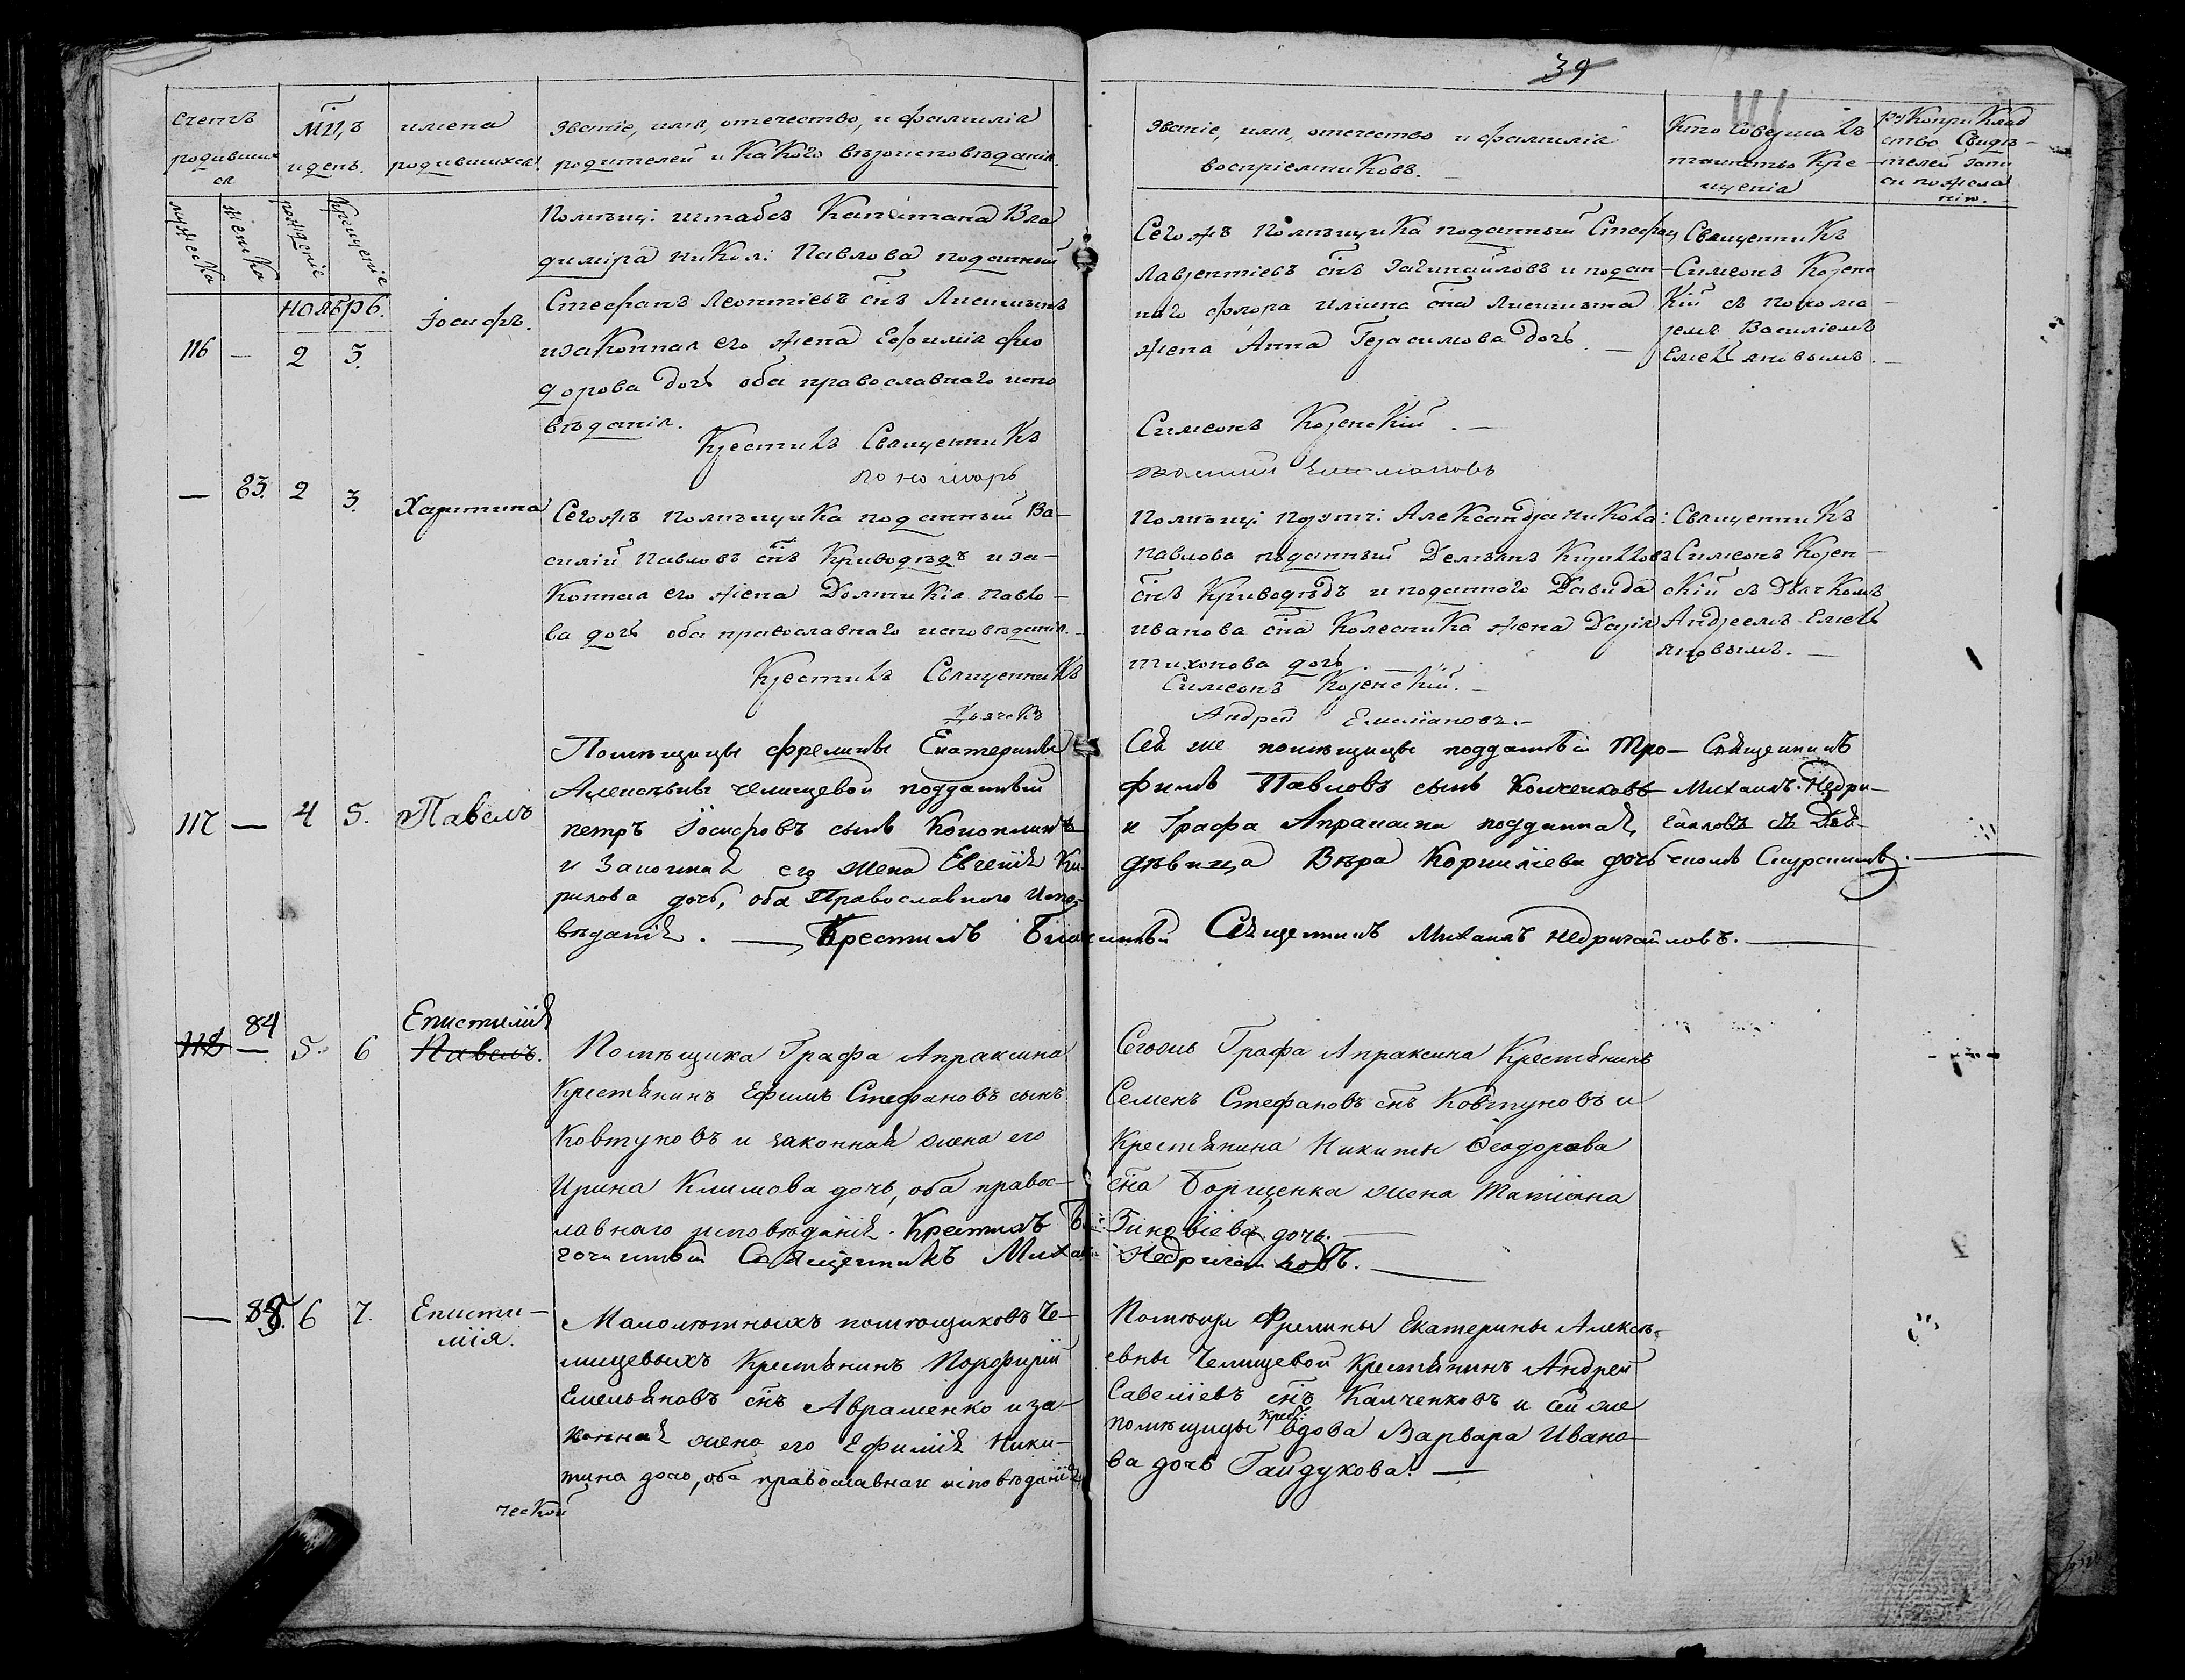 39
111
счетъ родившихся
мужеска
женска
мц,ъ и день.
рожденіе
крещеніе
имена родившихся.
Званіе, имя, отечество, и фамилія
родителей и какого вѣроисповѣданія.
Званіе, имя, отечество и фамиліи
воспріемниковъ.
Кто совершалъ
таинство Кре-
щенія
Рукоприклад
ство Свидѣ-
телей запи
си по жела
нію.
Ноябрь.
116 — 2 3. Іосифъ.
Помѣщ: штабсъ Капитана Вла
димира Никол: Павлова поданный
Стефанъ Леонтіевъ снъ
изаконная его жена Ефимія Фио
дорова дочь оба православнаго испо
вѣданія.
Крестилъ Священникъ
пономарь
Сегожъ помѣщика поданный Стефан
Лаврентіевъ снъ и подан-
наго Флора Иліина сна
жена Анна Герасимова дочь. —
Симеонъ Козенскій. —
Василий Емельановъ
Священникъ
Симеонъ Козенс
кій съ понома
ремъ Василіемъ
Емельяновымъ. —
— 83. 2 3. Харитина
Сегожъ помѣщика поданный Ва-
силій Павловъ снъ Криводѣдъ и за-
конная его жена Домникія Павло-
ва дочь оба православнаго исповѣданія. —
Крестилъ Священникъ
Дьячекъ
Помѣщ: Поруч: Александра Никола:
Павлова поданный Демьянъ Кирилловъ
снъ Криводѣдъ и поданного Давида
Иванова сна Колесника жена Дарія
Тихонова дочь. —
Симеонъ Козенскій. —
Андрей Емелїановъ. —
Священникъ
Симеонъ Козен-
скій съ Дьячкомъ
Андреемъ Емель
яновымъ. —
117 — 4 5. Павелъ
Помѣщицы фрелины Екатерины
Алексѣевны Челищевой подданный
петръ Іосифовъ сынъ Коноплинъ
и Законная его жена Евгенія Ки
рилова дочь, оба Православного Испо-
вѣданія. — Крестилъ Священникъ Михаилъ Недригайловъ. —
Сей же помѣщицы подданный Тро-
фимъ Павловъ сынъ Колченковъ
и Графа Апраксина подданная,
дѣвица Вѣра Корниліева дочь
Священникъ
Михаилъ Недри-
гайловъ съ Дья-
чкомъ
118 84 — 5. 6 Епистимія
Павелъ.
Помѣщика Графа Апраксина
Крестьянинъ Ефимъ Стефановъ сынъ
Ковтуновъ и законная жена его
Ирина Климова дочь, оба правос-
лавнаго исповѣданія. Крестилъ Бла-
гочинный Священникъ Михаил
Сегожъ Графа Апраксина Крестьянинъ
Семенъ Стефановъ снъ Ковтуновъ и
Крестьянина Никиты Ѳеодорова
сна Борщенка жена Татіана
Зиновіева дочь. —
Недригайловъ. —
— 85. 6 7. Еписти-
мія.
Малолѣтныхъ помѣщиковъ Че-
лищевыхъ Крестьянинъ Порфирій
Емельяновъ снъ Авраменко и за-
конная жена его Ефимія Ники-
тина дочь, оба православнаго исповѣданія
Помѣщи: Фрелины Екатерины Алексѣ-
евны Челищевой Крестьянинъ Андрей
Савеліевъ снъ Калченковъ и сей же
помѣщицы крес: вдова Варвара Ивано-
ва дочь Гайдукова. —
ческой